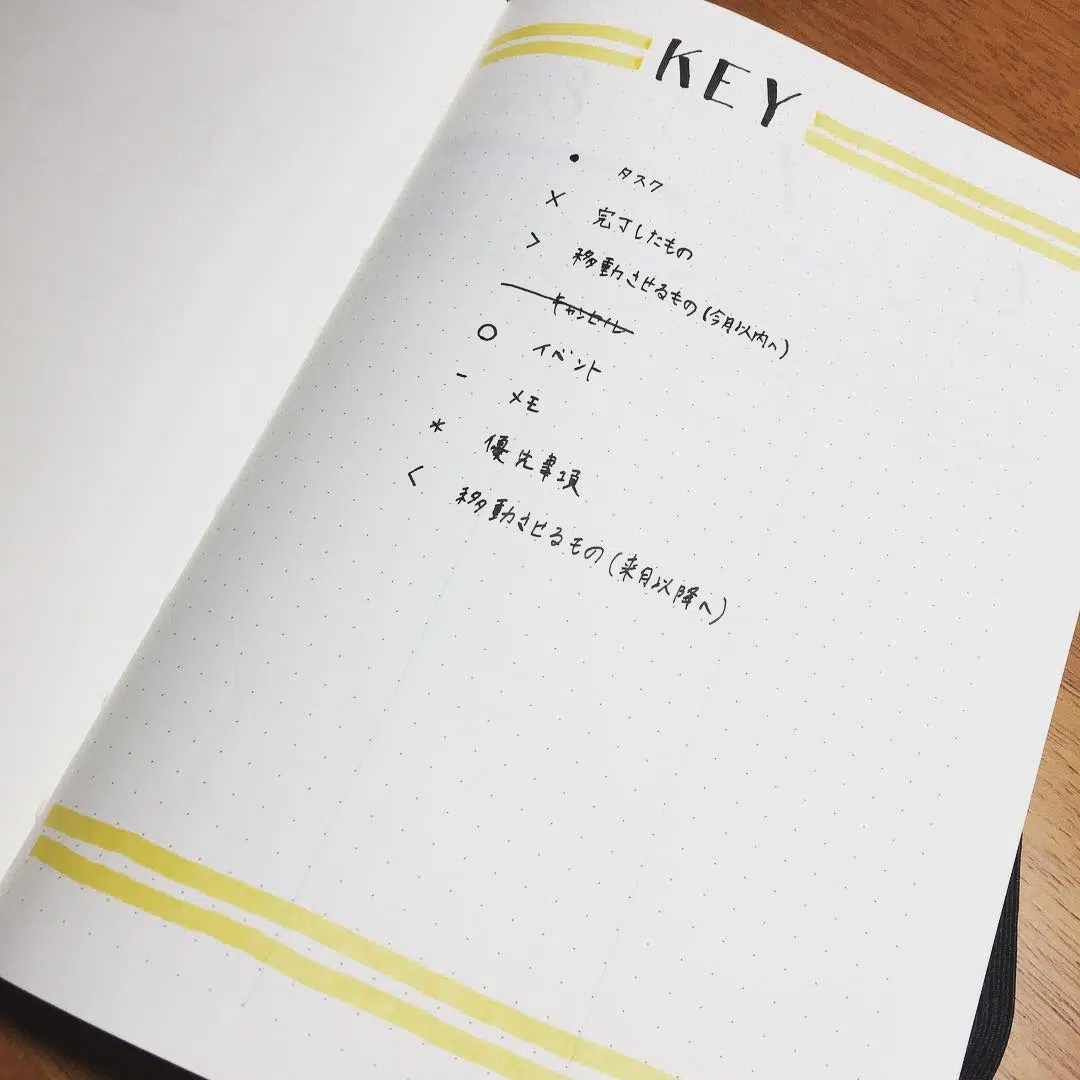 KEY
• タスク
× 完了したもの
> 移動させるもの(今月以内へ)
— キャンセル
○ イベント
- メモ
* 優先事項
< 移動させるもの(来月以降へ)